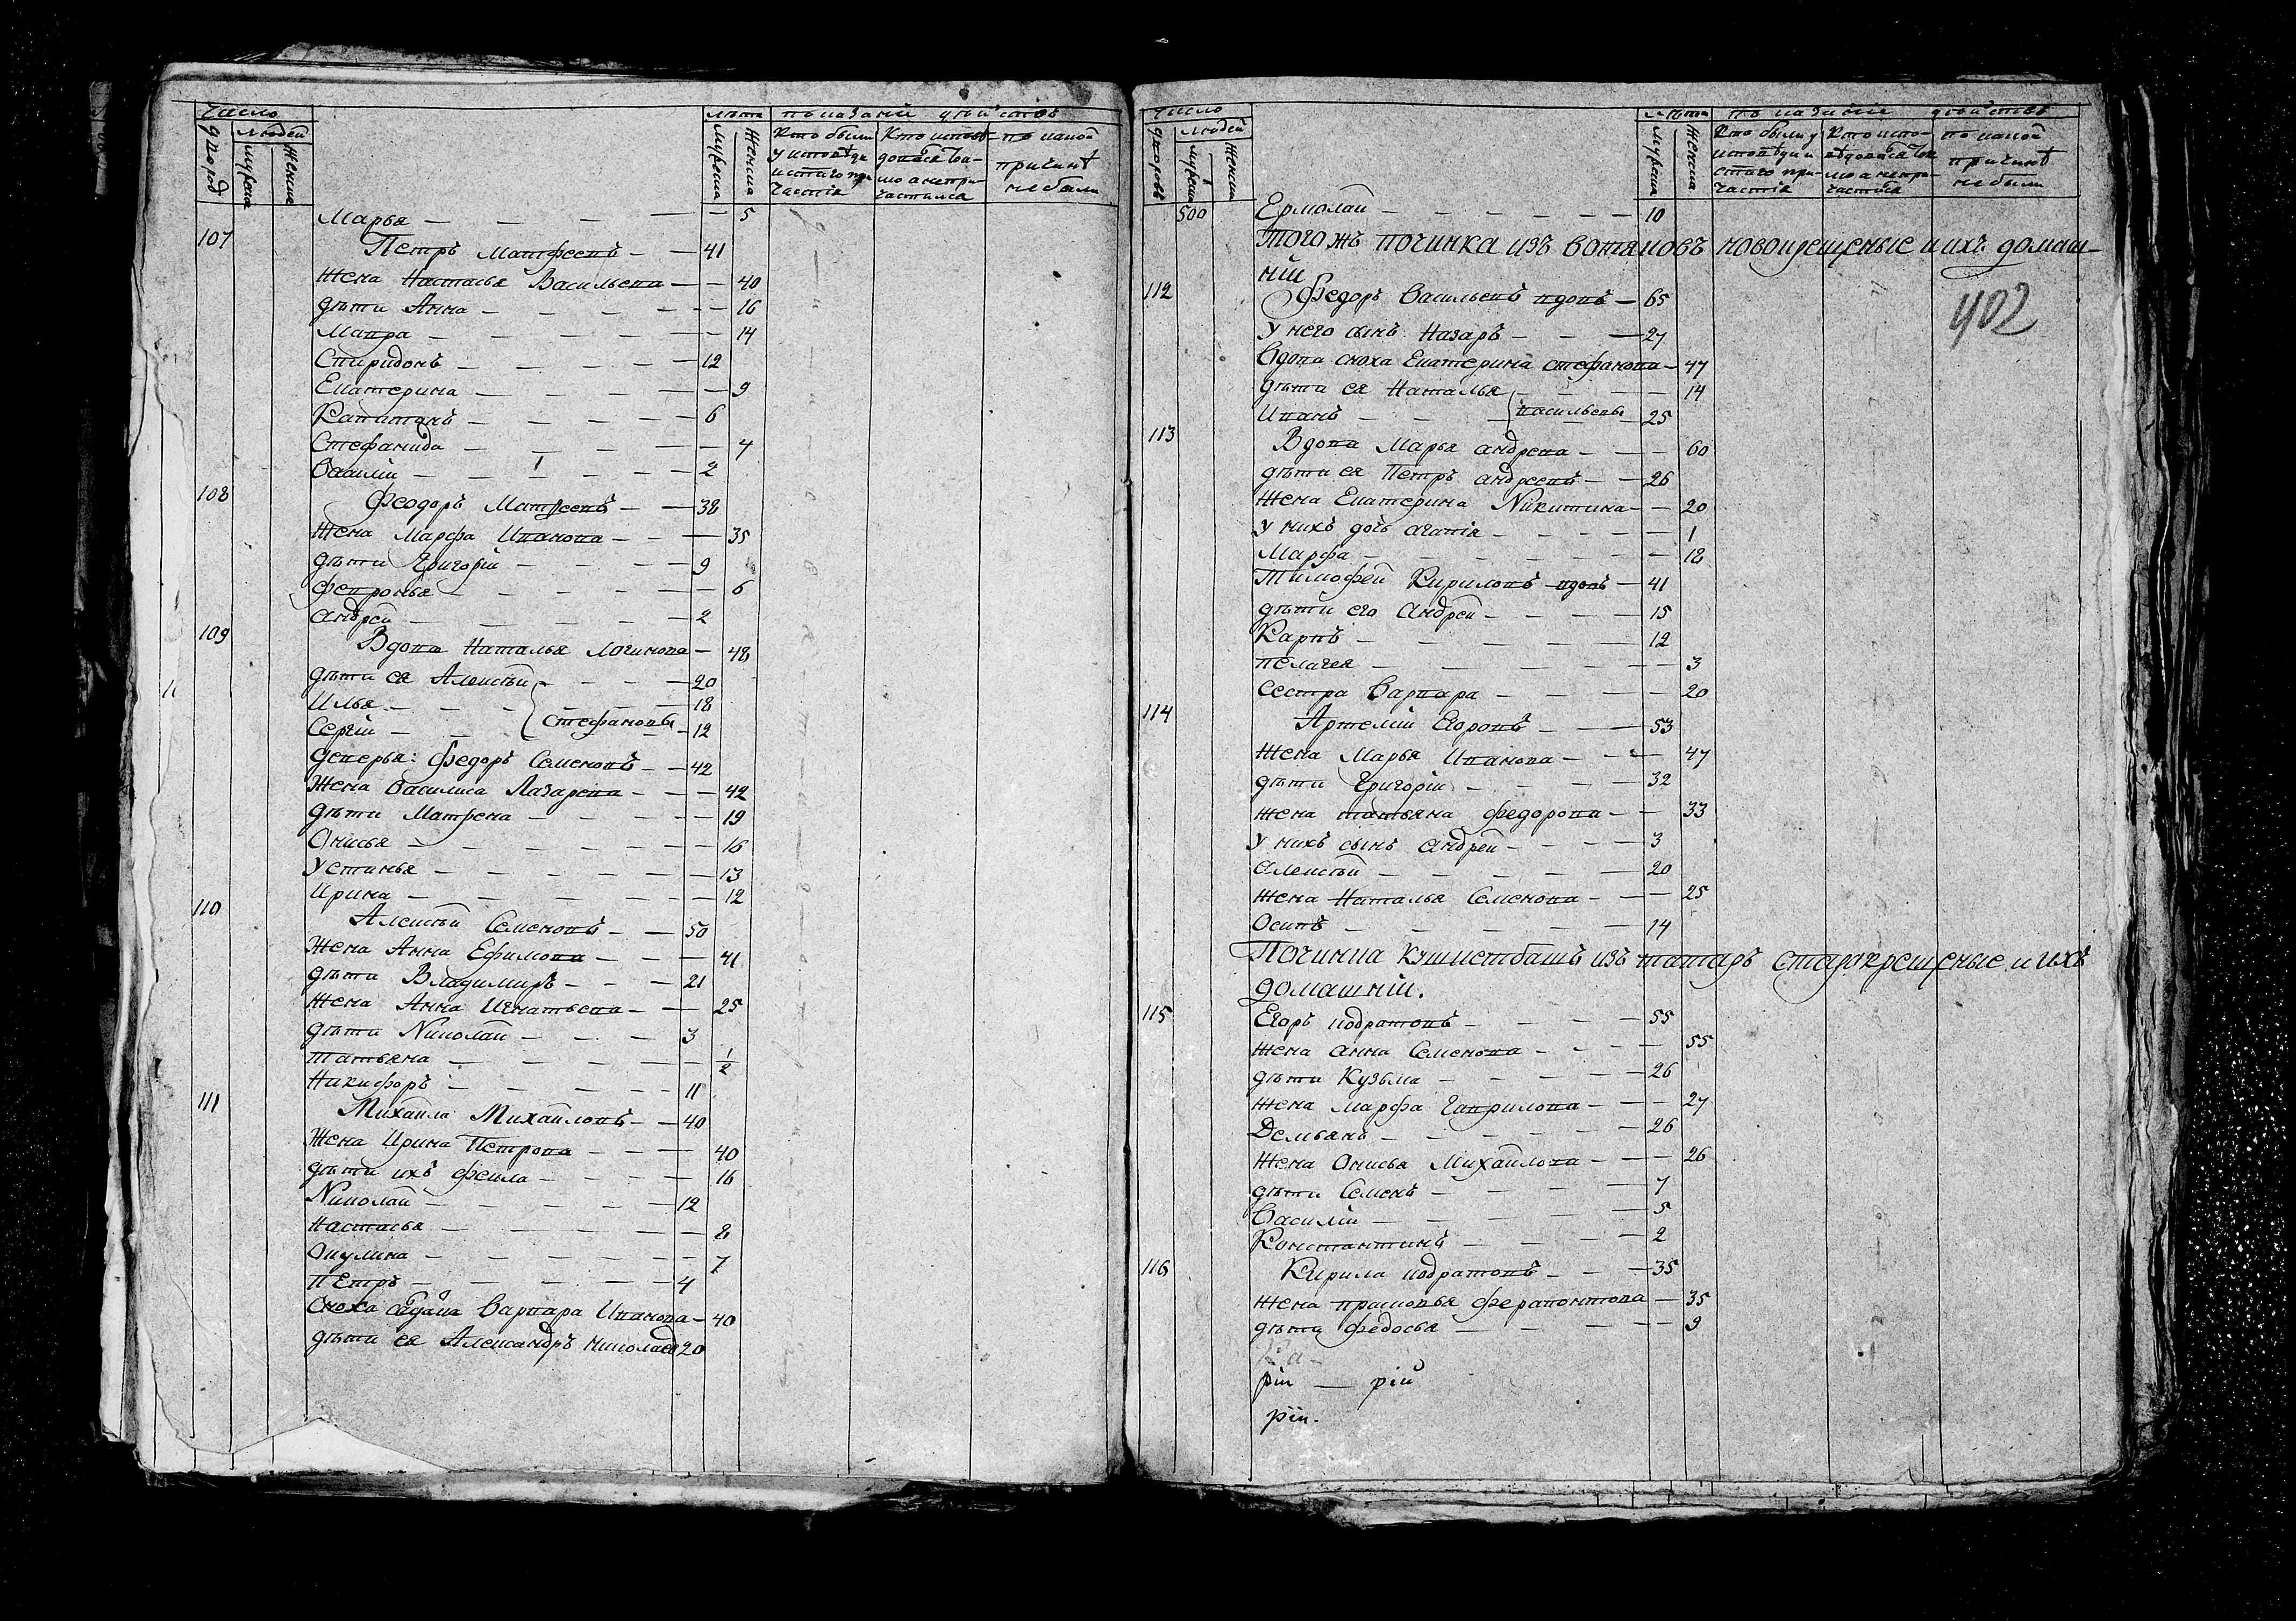 Число
людей
дворов
мужеска
женска
лѣта
мужеска
женска
показаніи дѣйствъ
Кто были
у исповѣди
и стаго при
частія
Кто исповѣ-
довался то-
мо а непри-
частился
по какой
причинѣ
не были
Марья — — — — 5
107
Петръ Матфеевъ — — 41
жена Настасья Васильева — — 40
дѣти Анна — — — 16
Мавра — — — 14
Спиридонъ — — — 12
Екатерина — — — 9
Капитонъ — — — 6
Стефанида — — — 4
Василій — — — 2
108
Феодоръ Матфеевъ — — 38
жена Марфа Иванова — — 35
дѣти Григорій — — — 9
Февронья — — — 6
Андрей — — — 2
109
Вдова Наталья Логинова — 48
дѣти ея Алексѣй — — — 20
Илья — — — 18
Стефановы
Сергій — — — 12
деверья: Федоръ Семеновъ — — 42
Жена Василиса Лазарева — — — 42
дѣти Матрена — — — 19
Онисья — — — 16
Устинья — — — 13
Ирина — — — 12
110
Алексѣй Семеновъ — — 50
Жена Анна Ефимова — — — 41
дѣти Владимиръ — — — 21
жена Анна Игнатьева — — 25
дѣти Николай — — — 3
татьяна — — — 1/2
Никифоръ — — — 11
111
Михайла Михайловъ — — 40
Жена Ирина Петрова — — — 40
дѣти ихъ Фекла — — — 16
Николай — — — 12
Настасья — — — 8
Окулина — — — 7
Петръ — — — 4
Сноха Варвара Иванова — 40
дѣти ея Александръ Николаевъ 20
Число
людей
дворовъ
мужеска
женска
лѣта
мужеска
женска
показаніе дѣйствъ
Кто были у
исповѣди и
стаго при-
частія
Кто испо-
вѣдовался то
мо а непри-
частился
по какой
причинѣ
не были
500
Ермолай — — — 10
Того жъ починка изъ вотяковъ новокрещеные и ихъ домаш-
ніи
402
112
Федоръ Васильевъ вдовъ — 65
У него сынъ Назаръ — — — 27
Вдова сноха Екатерина Стефанова — 47
дѣти ея Наталья — — — 14
Васильевы
Иванъ — — — 25
113
Вдова Марья Андреева — — — 60
дѣти ея Петръ Андреевъ — — 26
жена Екатерина Никитина — — 20
У нихъ дочь Агапія — — — 1
Марфа — — — 18
Тимофей Кириловъ вдовъ — 41
дѣти его Андрей — — — 15
Карпъ — — — 12
пелагея — — — 3
Сестра Варвара — — — 20
114
Артемій Егоровъ — — 53
жена Марья Иванова — — — 47
дѣти Григорій — — — 32
жена татьяна Федорова — — 33
У нихъ сынъ Андрей — — — 3
Алексѣй — — — 20
жена Наталья Семенова — — — 25
Осипъ — — — 14
Починка Кушкетбашъ изъ татаръ старокрещеные и ихъ
домашніи.
115
Егоръ Кодратовъ — — — 55
жена Анна Семенова — — — 55
дѣти Кузьма — — — 26
жена Марфа Гаврилова — — — 27
Демьянъ — — — 26
жена Онисья Михайлова — — — 26
дѣти Семенъ — — — 7
Василій — — — 5
Константинъ — — — 2
116
Кирила Кодратовъ — — — 35
жена прасковья Ферапонтова — 35
дѣти Федосья — — — 9
рій — рій
рій.